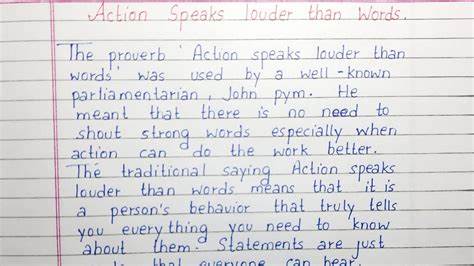 Action Speaks louder than Words.
The proverb ' Action speaks louder than
words' was used by a well-known
parliamentarian, John pym. He
meant that there is no need to
shout strong words especially when
action can do the work better.
The traditional saying Action speaks
louder than words means that it is
a person's behavior that truly tells
you everything you need to know
about them. Statements are just
that everyone can hear.